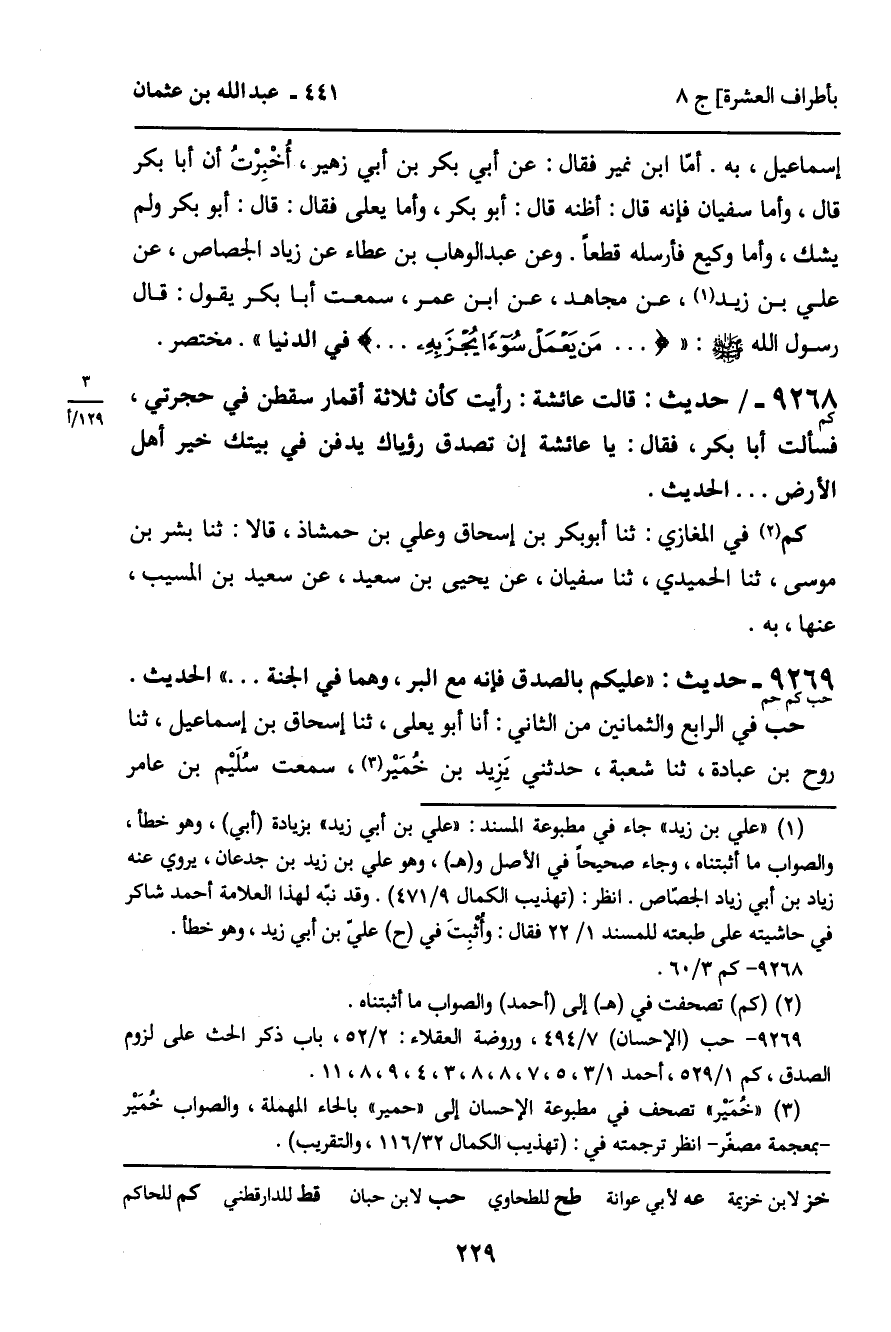 بأطراف العشرة] ج ٨
٤٤١ ـ عبدالله بن عثمان
إسماعيل ، به . أمّا ابن نمير فقال : عن أبي بكر بن أبي زهير ، أُخْبِرْتُ أن أبا بكر
قال ، وأما سفيان فإنه قال : أظنه قال : أبو بكر ، وأما يعلى فقال : قال : أبو بكر ولم
يشك ، وأما وكيع فأرسله قطعاً . وعن عبدالوهاب بن عطاء عن زياد الجصاص ، عن
علي بن زيد(١) ، عن مجاهد ، عن ابن عمر ، سمعت أبا بكر يقول : قال
رسول الله ﷺ : « ﴿ ... مَن يَعْمَلْ سُوٓءًا يُجْزَ بِهِۦ ...﴾ في الدنيا » . مختصر .
٩٢٦٨ ـ / حديث : قالت عائشة : رأيت كأن ثلاثة أقمار سقطن في حجرتي ،
٣
١٢٩/أ
كم
فسألت أبا بكر ، فقال : يا عائشة إن تصدق رؤياك يدفن في بيتك خير أهل
الأرض ... الحديث .
كم(٢) في المغازي : ثنا أبوبكر بن إسحاق وعلي بن حمشاذ ، قالا : ثنا بشر بن
موسى ، ثنا الحميدي ، ثنا سفيان ، عن يحيى بن سعيد ، عن سعيد بن المسيب ،
عنها ، به .
٩٢٦٩ ـ حديث : «عليكم بالصدق فإنه مع البر ، وهما في الجنة ...» الحديث .
حب كم حم
حب في الرابع والثمانين من الثاني : أنا أبو يعلى ، ثنا إسحاق بن إسماعيل ، ثنا
روح بن عبادة ، ثنا شعبة ، حدثني يَزِيد بن خُمَيْر(٣) ، سمعت سُلَيْم بن عامر
(١) «علي بن زيد» جاء في مطبوعة المسند : «علي بن أبي زيد» بزيادة (أبي) ، وهو خطأ ،
والصواب ما أثبتناه ، وجاء صحيحاً في الأصل و(هـ) ، وهو علي بن زيد بن جدعان ، يروي عنه
زياد بن أبي زياد الجصّاص . انظر : (تهذيب الكمال ٤٧١/٩) . وقد نبّه لهذا العلامة أحمد شاكر
في حاشيته على طبعته للمسند ١/ ٢٢ فقال : وأُثْبِتَ في (ح) عليّ بن أبي زيد ، وهو خطأ .
٩٢٦٨- كم ٦٠/٣ .
(٢) (كم) تصحفت في (هـ) إلى (أحمد) والصواب ما أثبتناه .
٩٢٦٩- حب (الإحسان) ٤٩٤/٧ ، وروضة العقلاء : ٥٢/٢ ، باب ذكر الحث على لزوم
الصدق ، كم ٥٢٩/١ ، أحمد ٣/١ ، ٥ ، ٧ ، ٨ ، ٨ ، ٣ ، ٤ ، ٩ ، ٨ ، ١١ .
(٣) «خُمَيْر» تصحف في مطبوعة الإحسان إلى «حمير» بالحاء المهملة ، والصواب خُمَيْر
-بمعجمة مصغّر- انظر ترجمته في : (تهذيب الكمال ١١٦/٣٢ ، والتقريب) .
خز لابن خزيمة عه لأبي عوانة طح للطحاوي حب لابن حبان قط للدارقطني كم للحاكم
٢٢٩